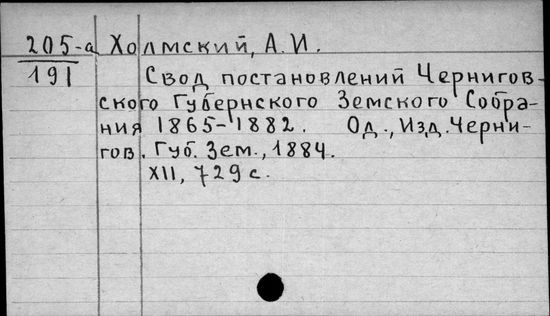 205-а Холмский, А.И.
191 Свод постановлений Чернигов-
ского Губернского Земского Собра-
ния 1865-1882. Од., Изд. Черни-
гов. Губ. Зем., 1884.
XII, 729 с.